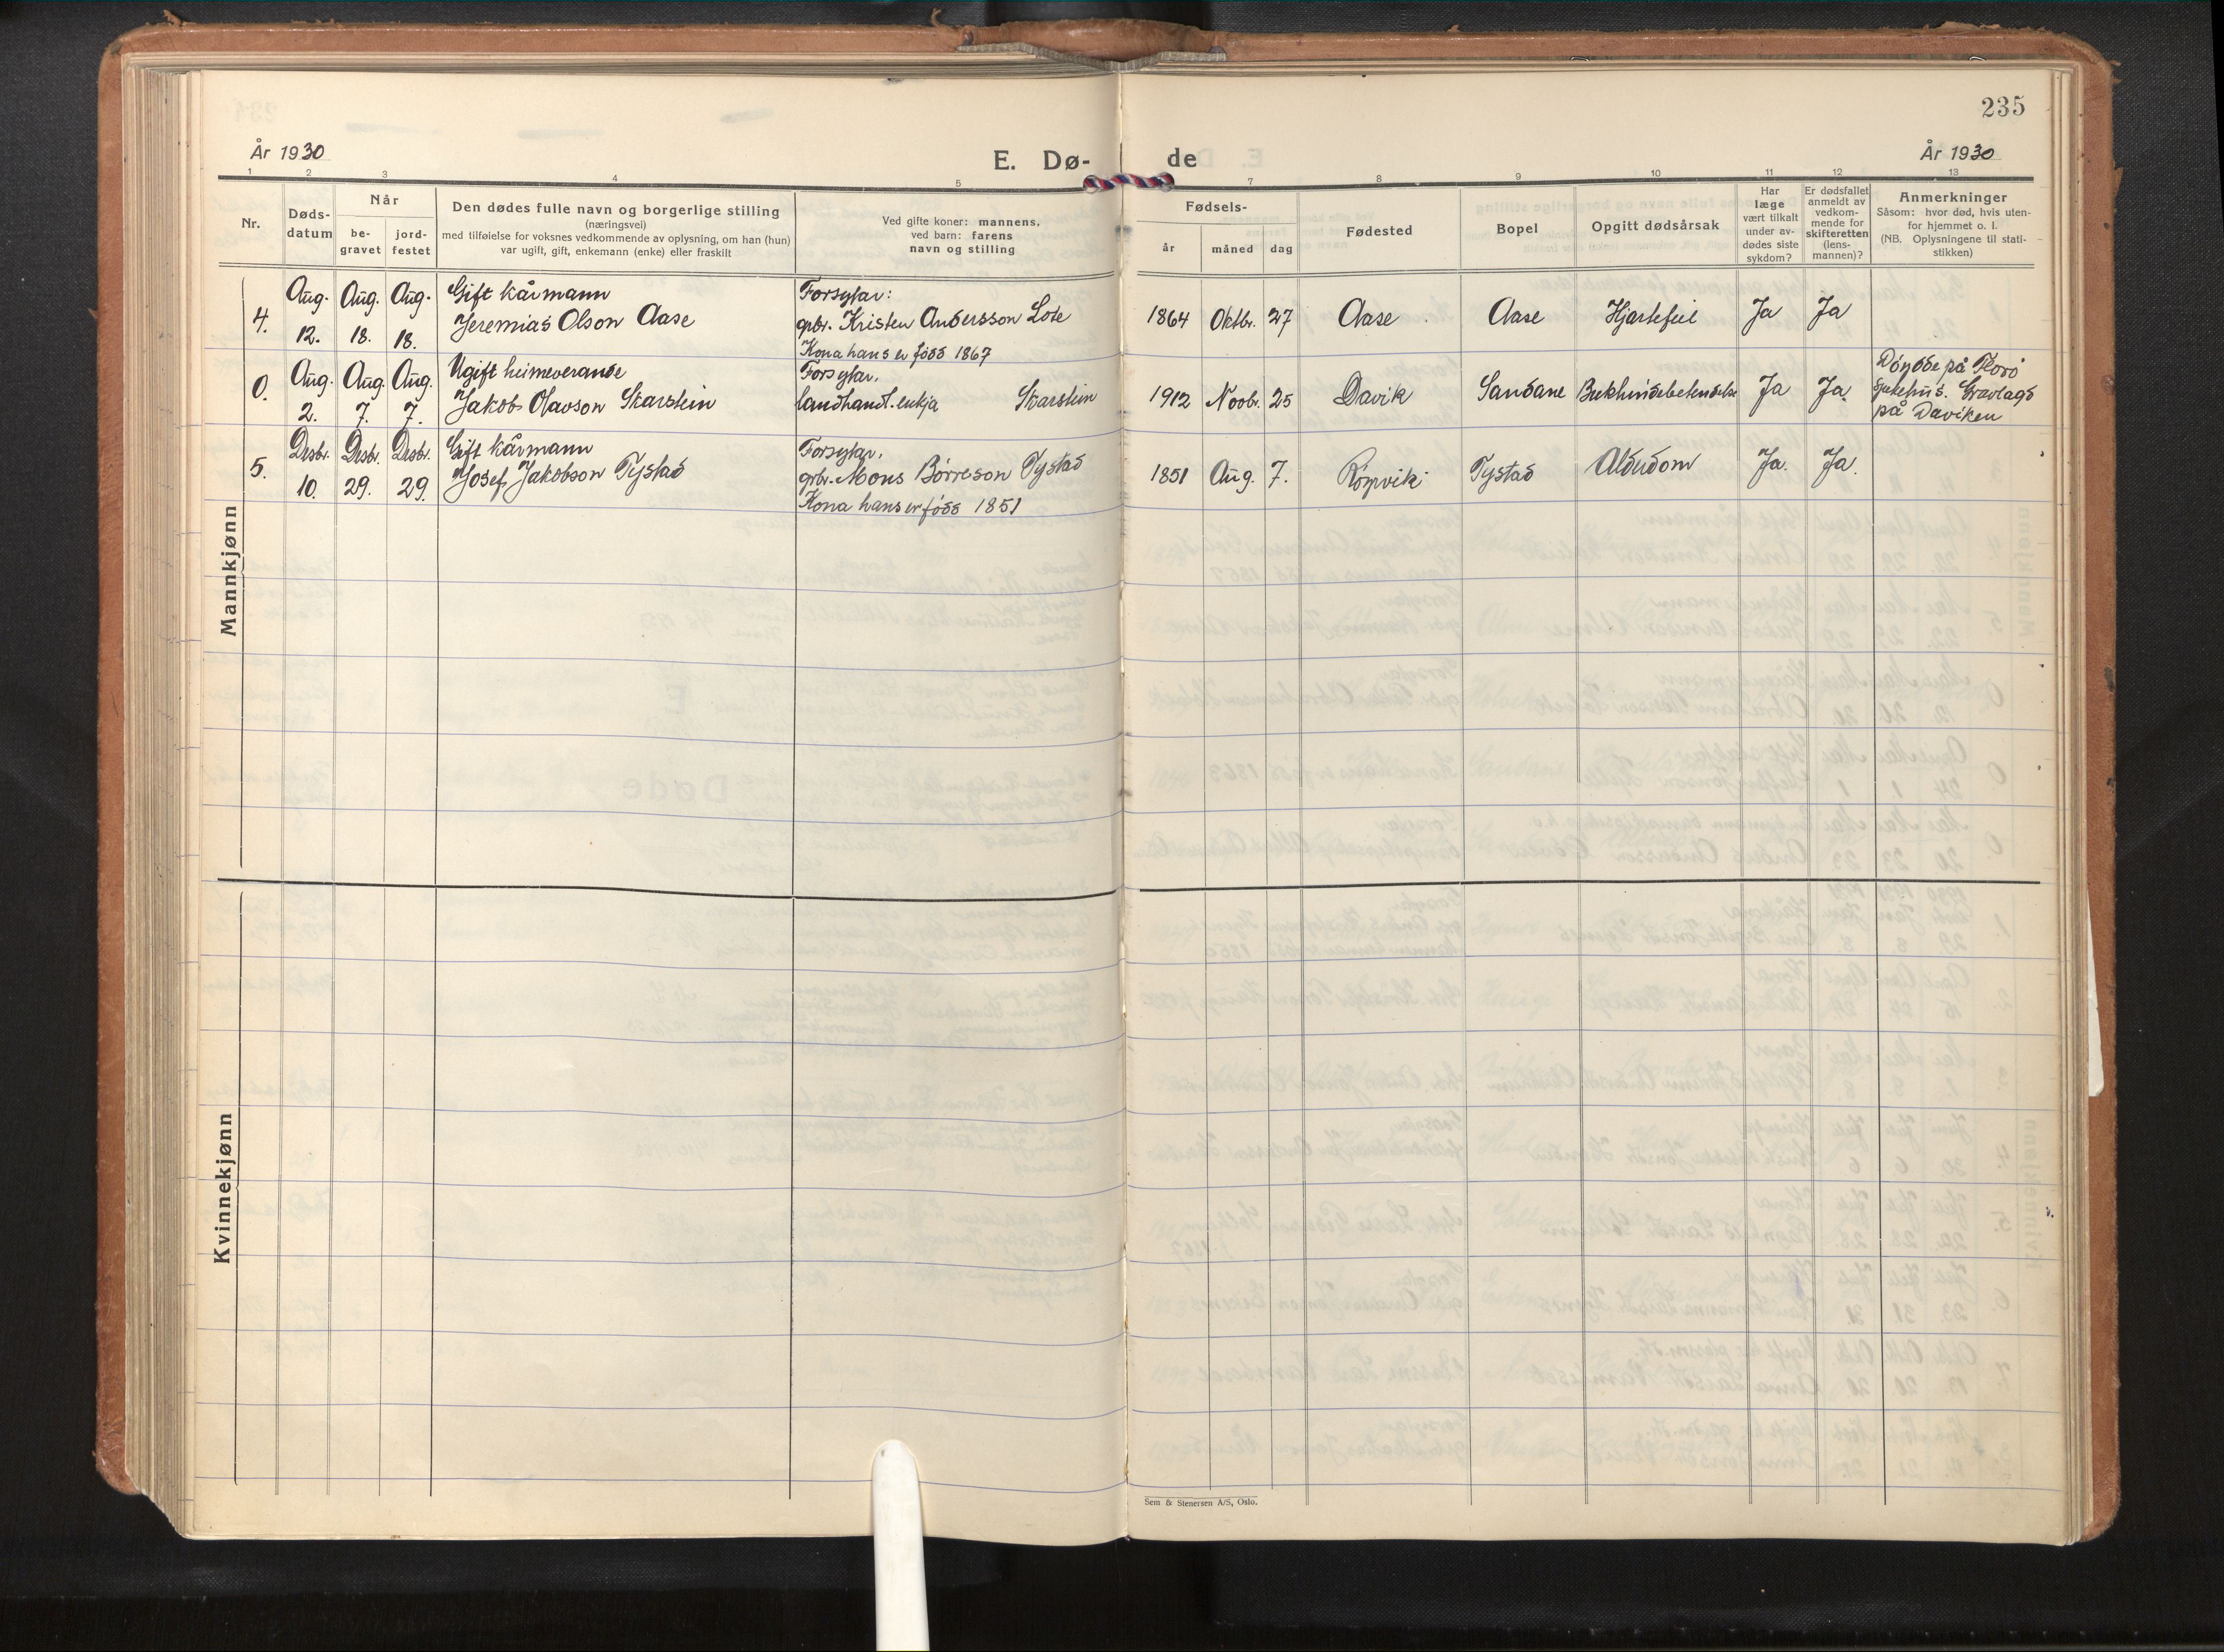 235
År 1930
E. Dø-
de
År 1930
1 2 3 4 5 7 8 9 10 11 12 13
Nr.
Døds-
datum
Når
be-
gravet
jord-
festet
Den dødes fulle navn og borgerlige stilling
(næringsvei)
med tilføielse for voksnes vedkommende av oplysning, om han (hun)
var ugift, gift, enkemann (enke) eller fraskilt
Ved gifte koner: mannens,
ved barn: farens
navn og stilling
Fødsels-
år
måned
dag
Fødested
Bopel
Opgitt dødsårsak
Har
læge
vært tilkalt
under av-
dødes siste
sykdom?
Er dødsfallet
anmeldt av
vedkom-
mende for
skifteretten
(lens-
mannen)?
Anmerkninger
Såsom: hvor død, hvis uten-
for hjemmet o. l.
(NB. Oplysningene til stati-
stikken)
Mannkjønn
4.
Aug.
12.
Aug.
18.
Aug.
18.
Gift kårmann
Jeremias Olson Aase
Forsytar:
grbr. Kristen Andersson Lote
Kona hans er fødd 1867
1864 Oktbr. 27 Aase Aase Hjartefeil Ja Ja
0.
Aug.
2.
Aug.
7.
Aug.
7.
Ugift heimeverande
Jakob Olavson Skarstein
Forsytar,
landhandl. enkja Skarstein
1912 Novb. 25 Davik Sandane Ja Ja
Døydde på
sjukehus. Gravlagd
på Daviken
5.
Desbr.
10.
Desbr.
29.
Desbr.
29.
Gift kårmann
Josef Jakobson Tystad
Forsytar,
grbr. Mons Børreson Tystad
Kona hans er fødd 1851
1851 Aug. 7. Tystad Alderdom Ja. Ja.
Kvinnekjønn
Sem & Stenersen A/S, Oslo.